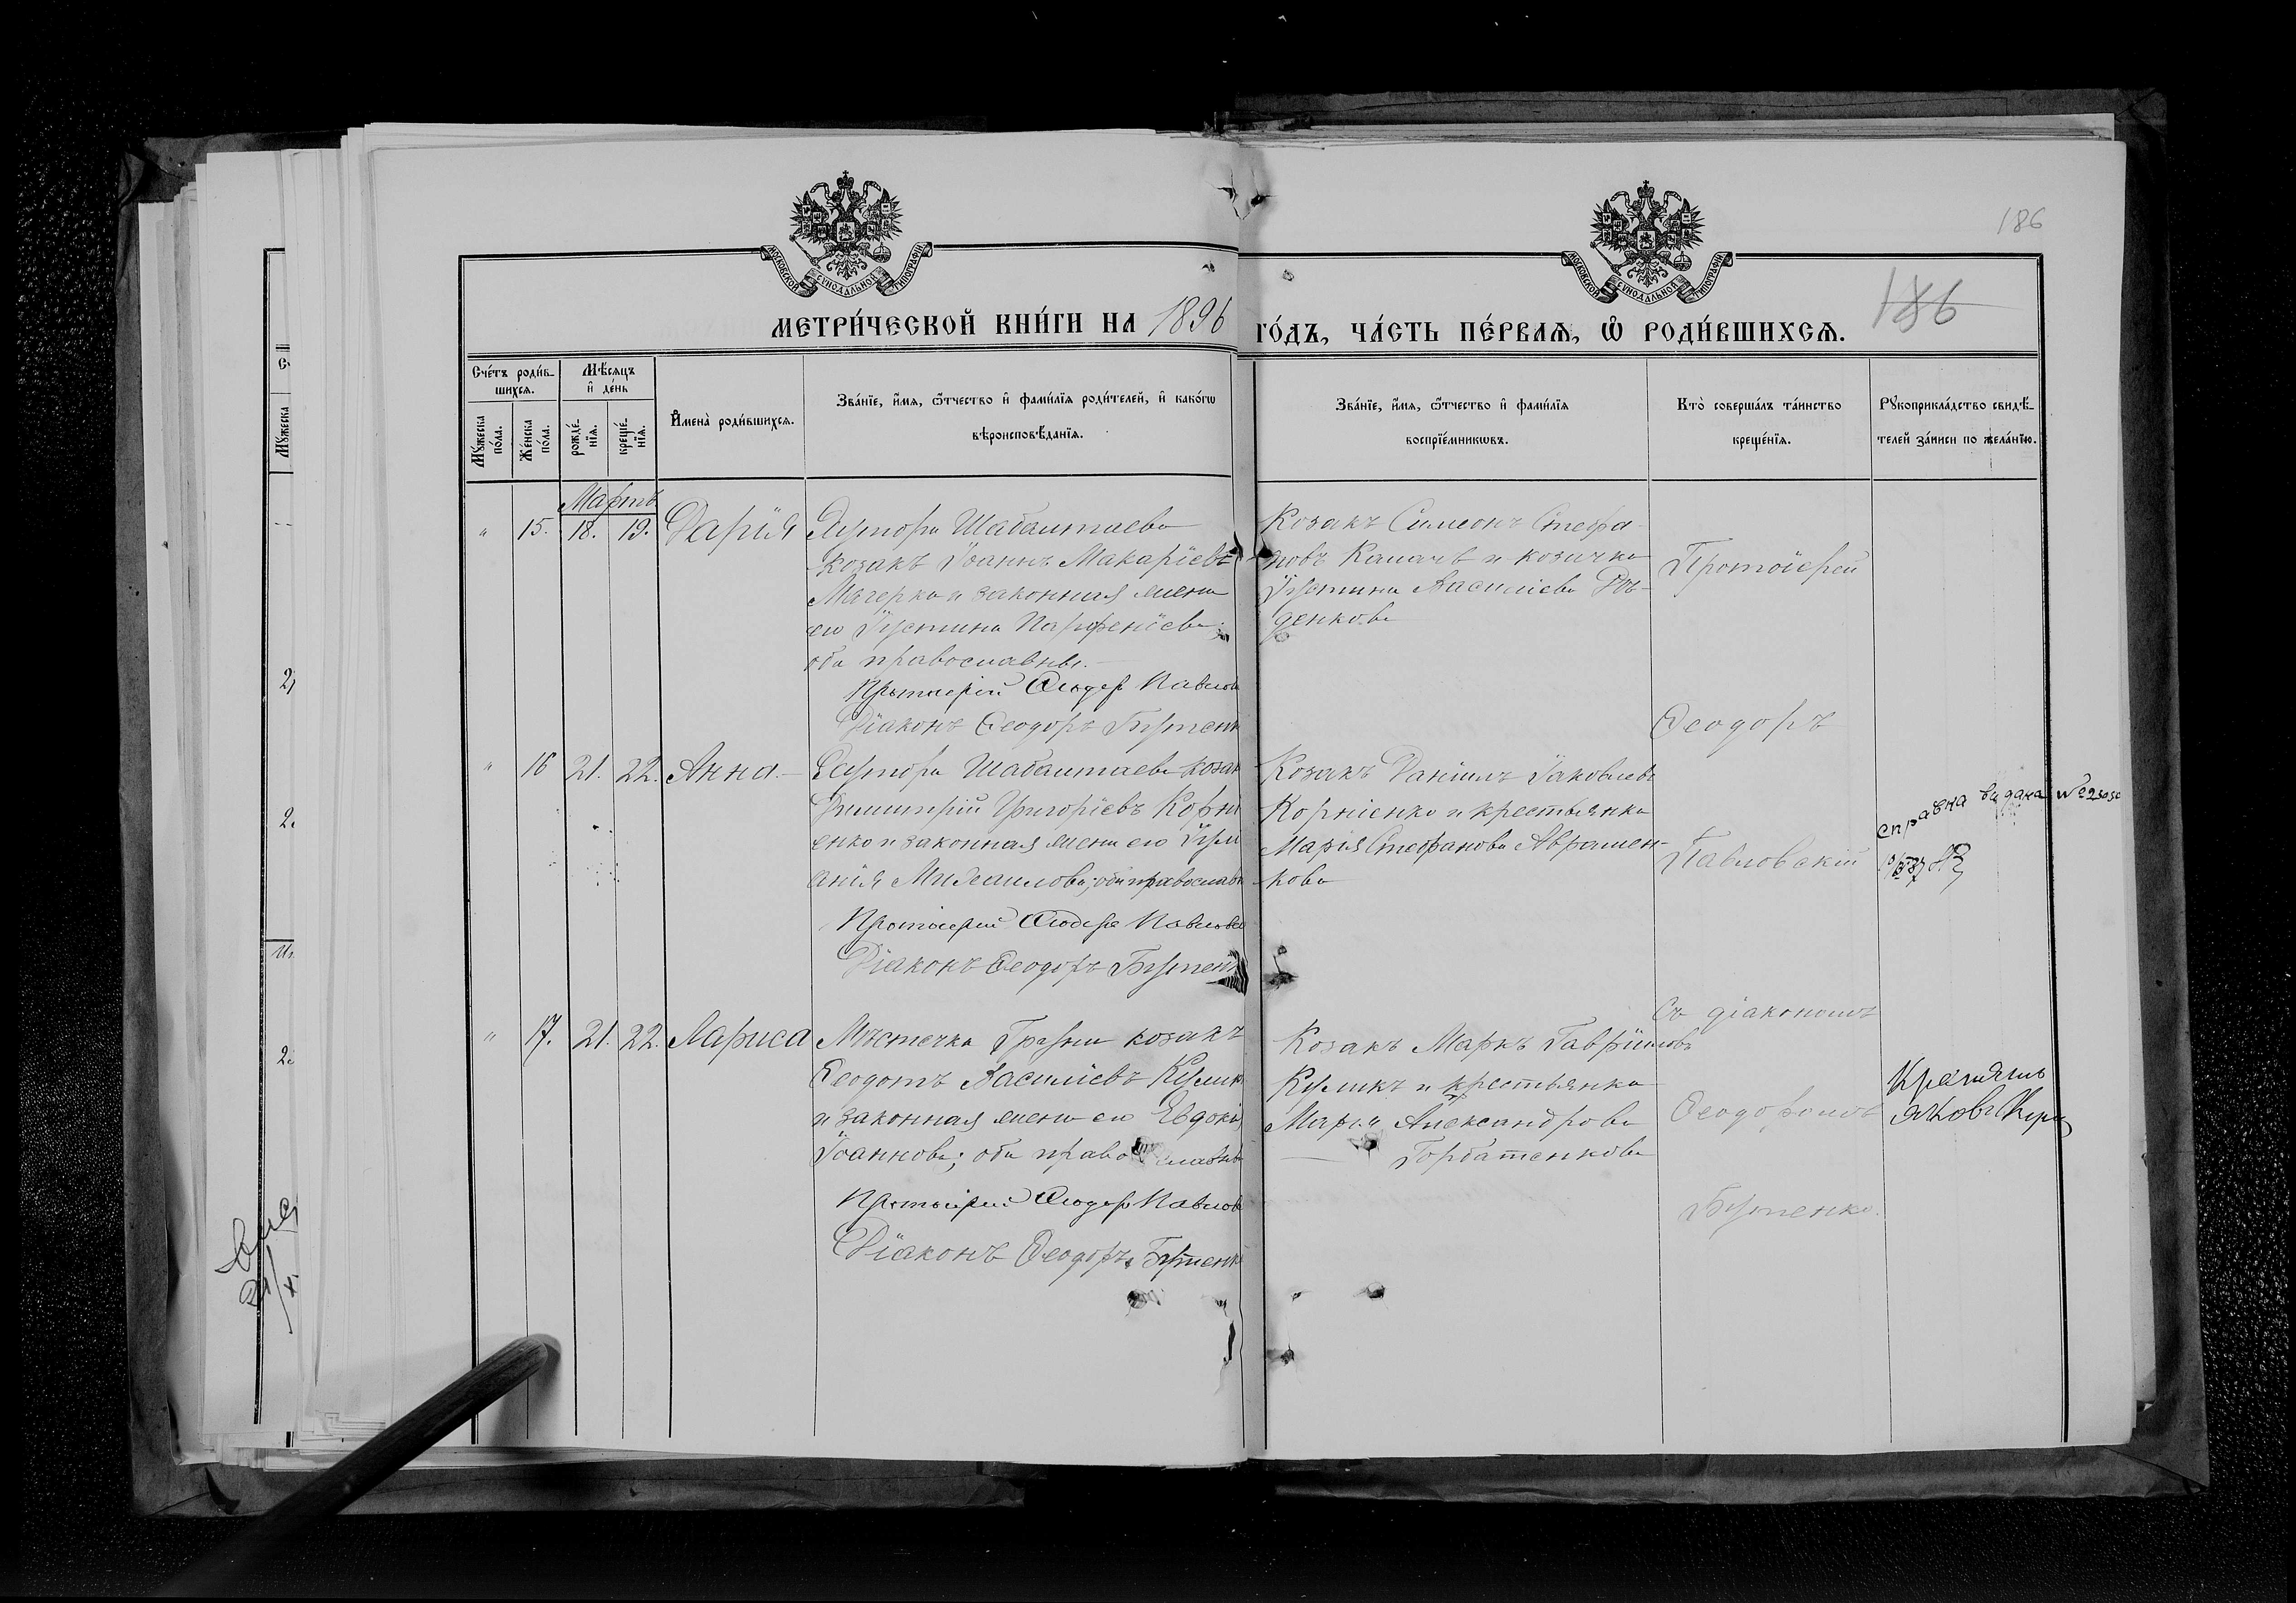 186
186
МОСКОВСКОЙ СѴНОДАЛЬНОЙ ТИПОГРАФІИ
МОСКОВСКОЙ СѴНОДАЛЬНОЙ ТИПОГРАФІИ
МЕТРИ́ЧЕСКОЙ КНИ́ГИ НА 1896 ГО́ДЪ, ЧА́СТЬ ПЕ́РВАѦ, Ѡ҆ РОДИ́ВШИХСѦ.
Сче́тъ роди́в-
шихсѧ.
Мꙋ́жеска по́ла.
Же́нска по́ла.
Мѣ́сѧцъ
и҆ де́нь
рожде́-
нїѧ.
креще́-
нїѧ.
И҆мена̀ роди́вшихсѧ.
Зва́нїе, и҆́мѧ, ѻ҆́тчество и҆ фами́лїѧ роди́телей, и҆ како́гѡ
вѣроисповѣ́данїѧ.
Зва́нїе, и҆́мѧ, ѻ҆́тчество и҆ фами́лїѧ
воспрїе́мникѡвъ.
Кто̀ соверша́лъ та́инство
креще́нїѧ.
Рꙋкоприкла́дство свидѣ́-
телей за́писи по жела́нїю.
Мартъ
" 15. 18. 19. Дарія
Хутора Шабалтаева
козакъ Іоаннъ Макаріевъ
Мачерка и законная жена
его Іустина Парфеніева;
оба православны.
Протоіерей Ѳеодоръ Павлов
Діаконъ Ѳеодоръ Бутенк
Козакъ Симеонъ Стефа-
новъ Калачъ и козачка
Іустина Василіева
денкова
Протоіерей
Ѳеодоръ
" 16 21. 22. Анна.
Хутора Шабалтаева козак
Димитрій Григоріевъ Корні
енко и законная жена его Іули
анія Михаилова; оба православн
Протоіерей Ѳеодоръ Павловс
Діаконъ Ѳеодоръ Бутенк
Козакъ Даніилъ Іаковлевъ
Корніенко и крестьянка
Марія Стефанова Авраменн-
кова
Павловскій
справка видана №
" 17. 21. 22. Лариса
Мѣстечка Груни козакъ
Ѳеодотъ Василіевъ Кулик
и законная жена его Евдокі
Іоаннова; оба православны
Протоіерей Ѳеодоръ Павлов
Діаконъ Ѳеодоръ Бутенк
Козакъ Маркъ Гавріиловъ
Куликъ и крестьянка
Марія Александрова
Горбатенкова
Съ діакономъ
Ѳеодоромъ
Бутенко.